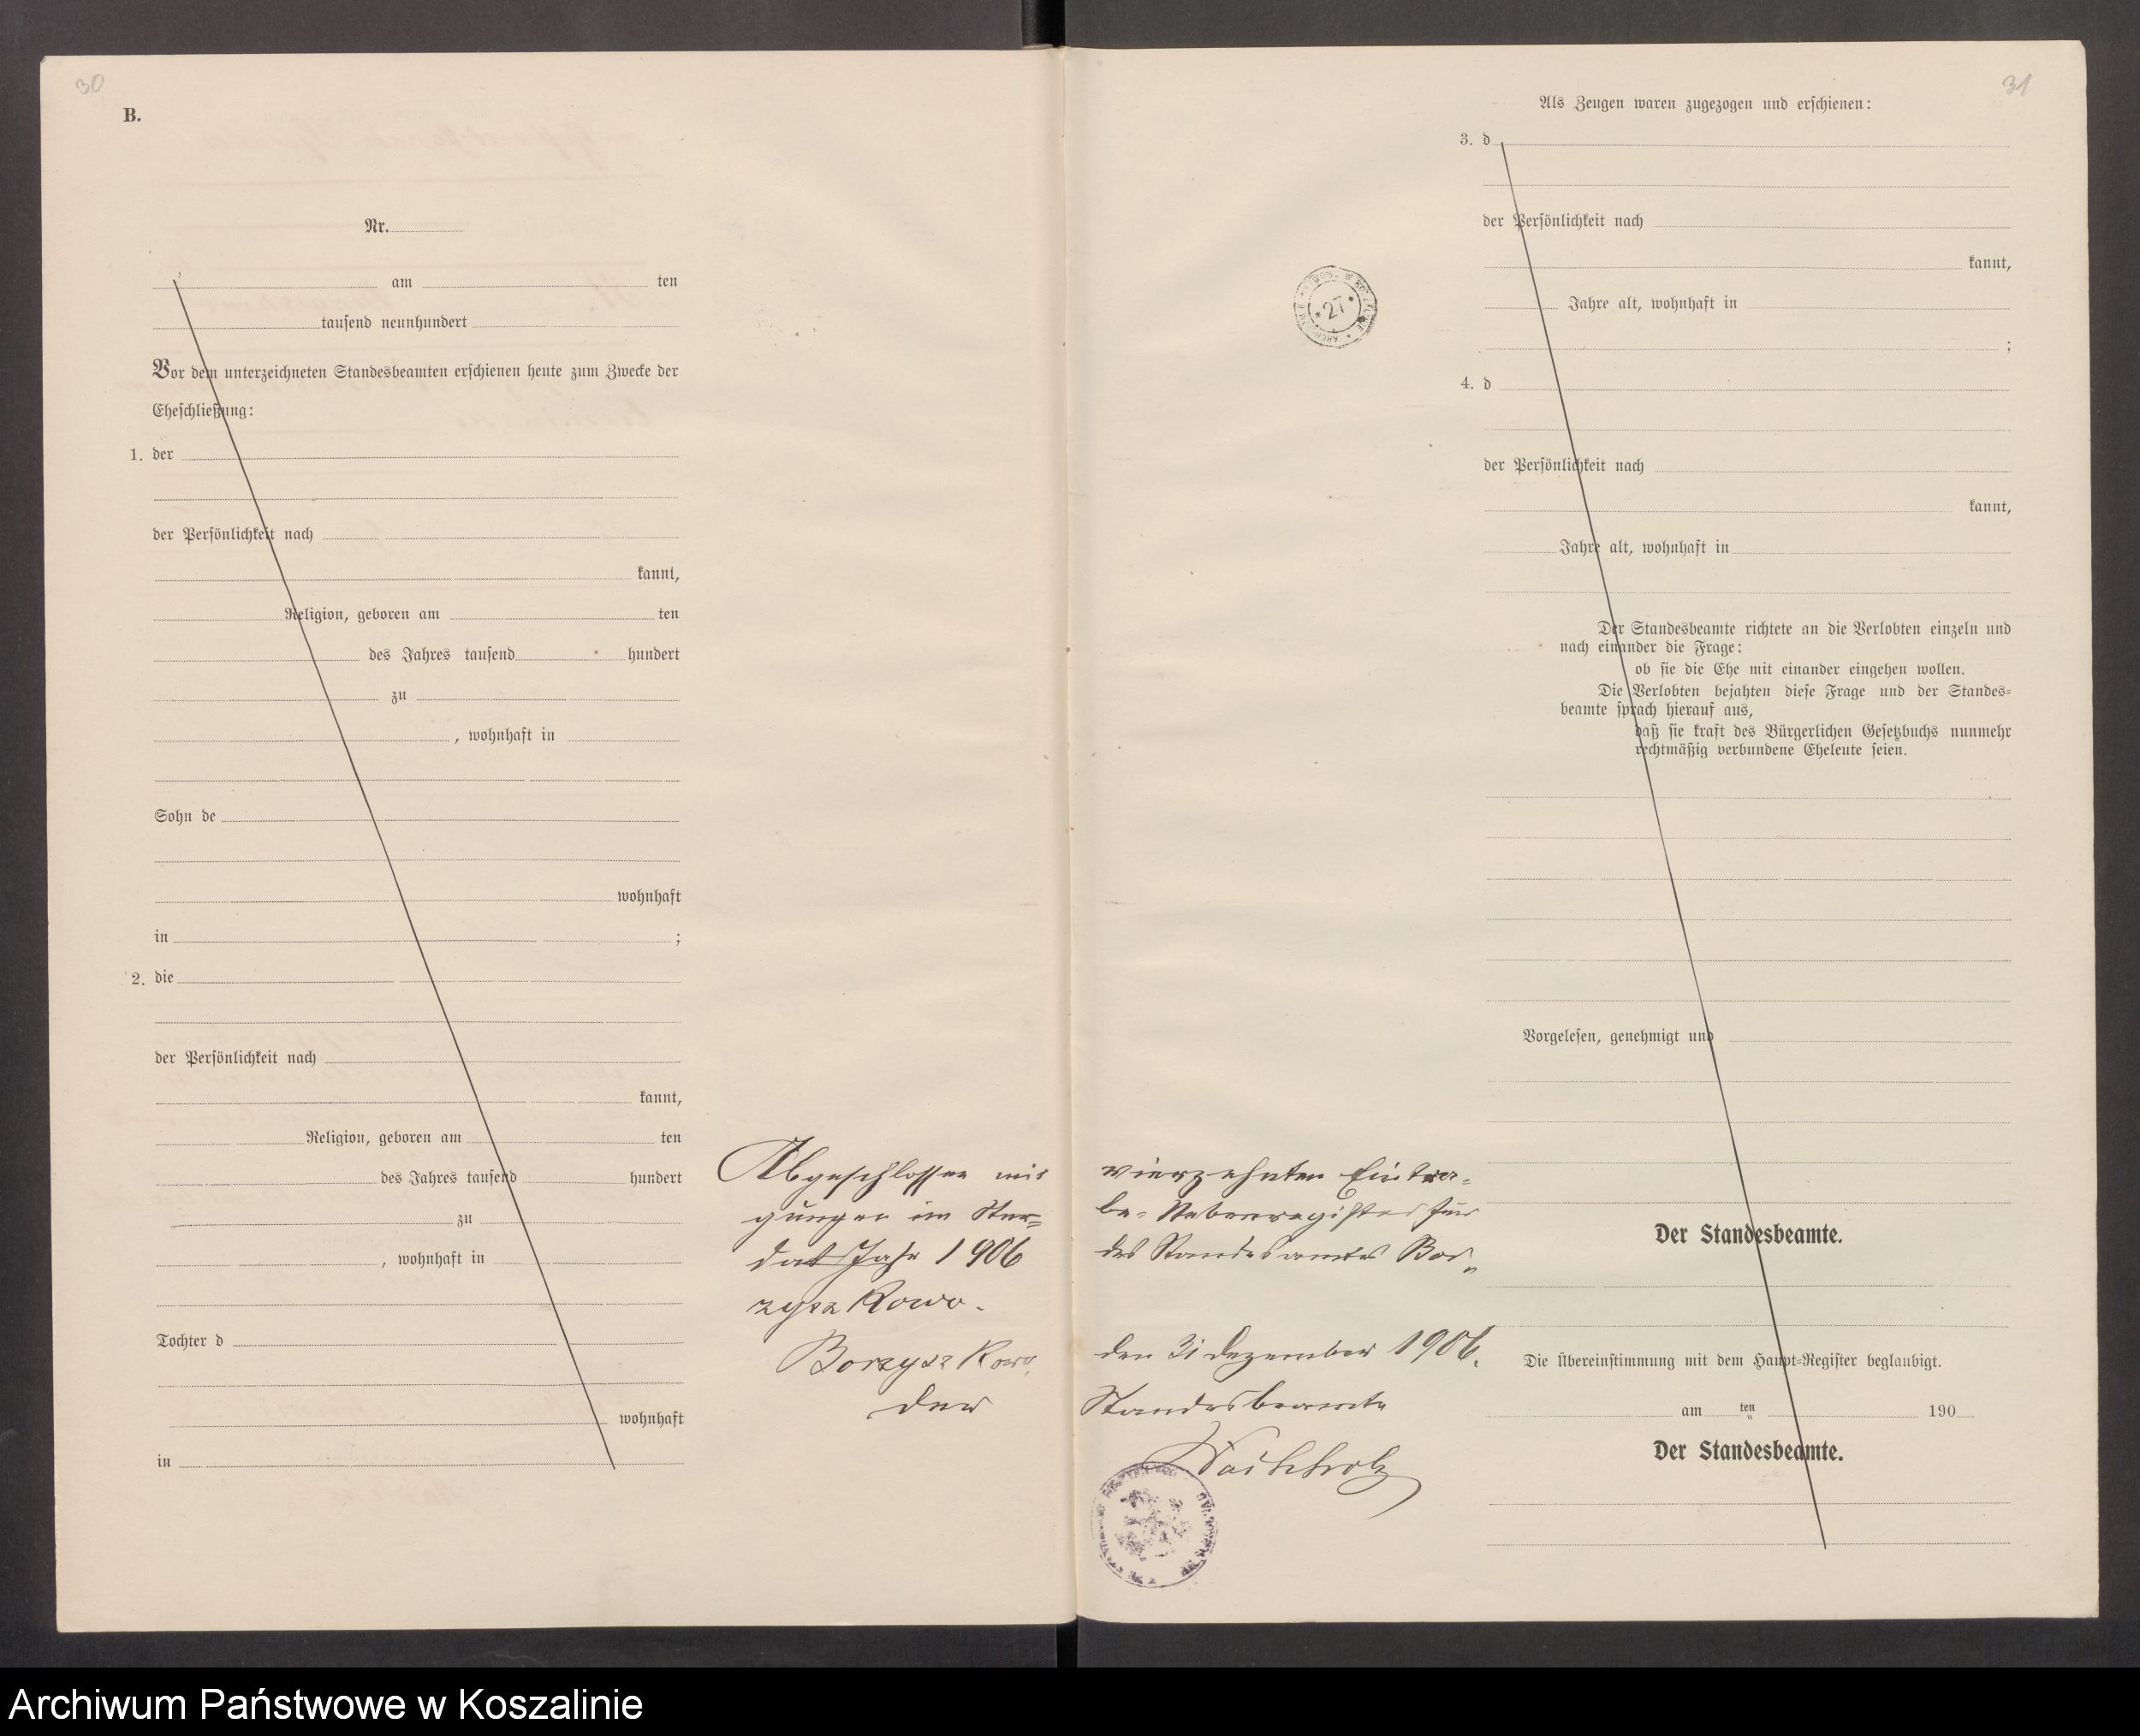 30
B.
Nr.
am ten
tausend neunhundert
Vor dem unterzeichneten Standesbeamten erschienen heute zum Zwecke der
Eheschließung:
1. der
der Persönlichkeit nach
kannt,
Religion, geboren am ten
des Jahres tausend hundert
zu
, wohnhaft in
Sohn de
wohnhaft
in ;
2. die
der Persönlichkeit nach
kannt,
Religion, geboren am ten
des Jahres tausend hundert
zu
, wohnhaft in
Tochter d
wohnhaft
in
31
Als Zeugen waren zugezogen und erschienen:
3. d
der Persönlichkeit nach
kannt,
Jahre alt, wohnhaft in
;
4. d
der Persönlichkeit nach
kannt,
Jahre alt, wohnhaft in
Der Standesbeamte richtete an die Verlobten einzeln und
nach einander die Frage:
ob sie die Ehe mit einander eingehen wollen.
Die Verlobten bejahten diese Frage und der Standes=
beamte sprach hierauf aus,
daß sie kraft des Bürgerlichen Gesetzbuchs nunmehr
rechtmäßig verbundene Eheleute seien.
Vorgelesen, genehmigt und
Der Standesbeamte.
Die Übereinstimmung mit dem Haupt=Register beglaubigt.
am ten 190
Der Standesbeamte.
Abgeschlossen mit vierzehnten Eintra=
gungen im Ster= be= Nebenregister für
das Jahr 1906 des Standesamtes Bor=
zyszkowo.
Borzyszkowo, den 31 Dezember 1906.
der Standesbeamte
27
Archiwum Państwowe w Koszalinie